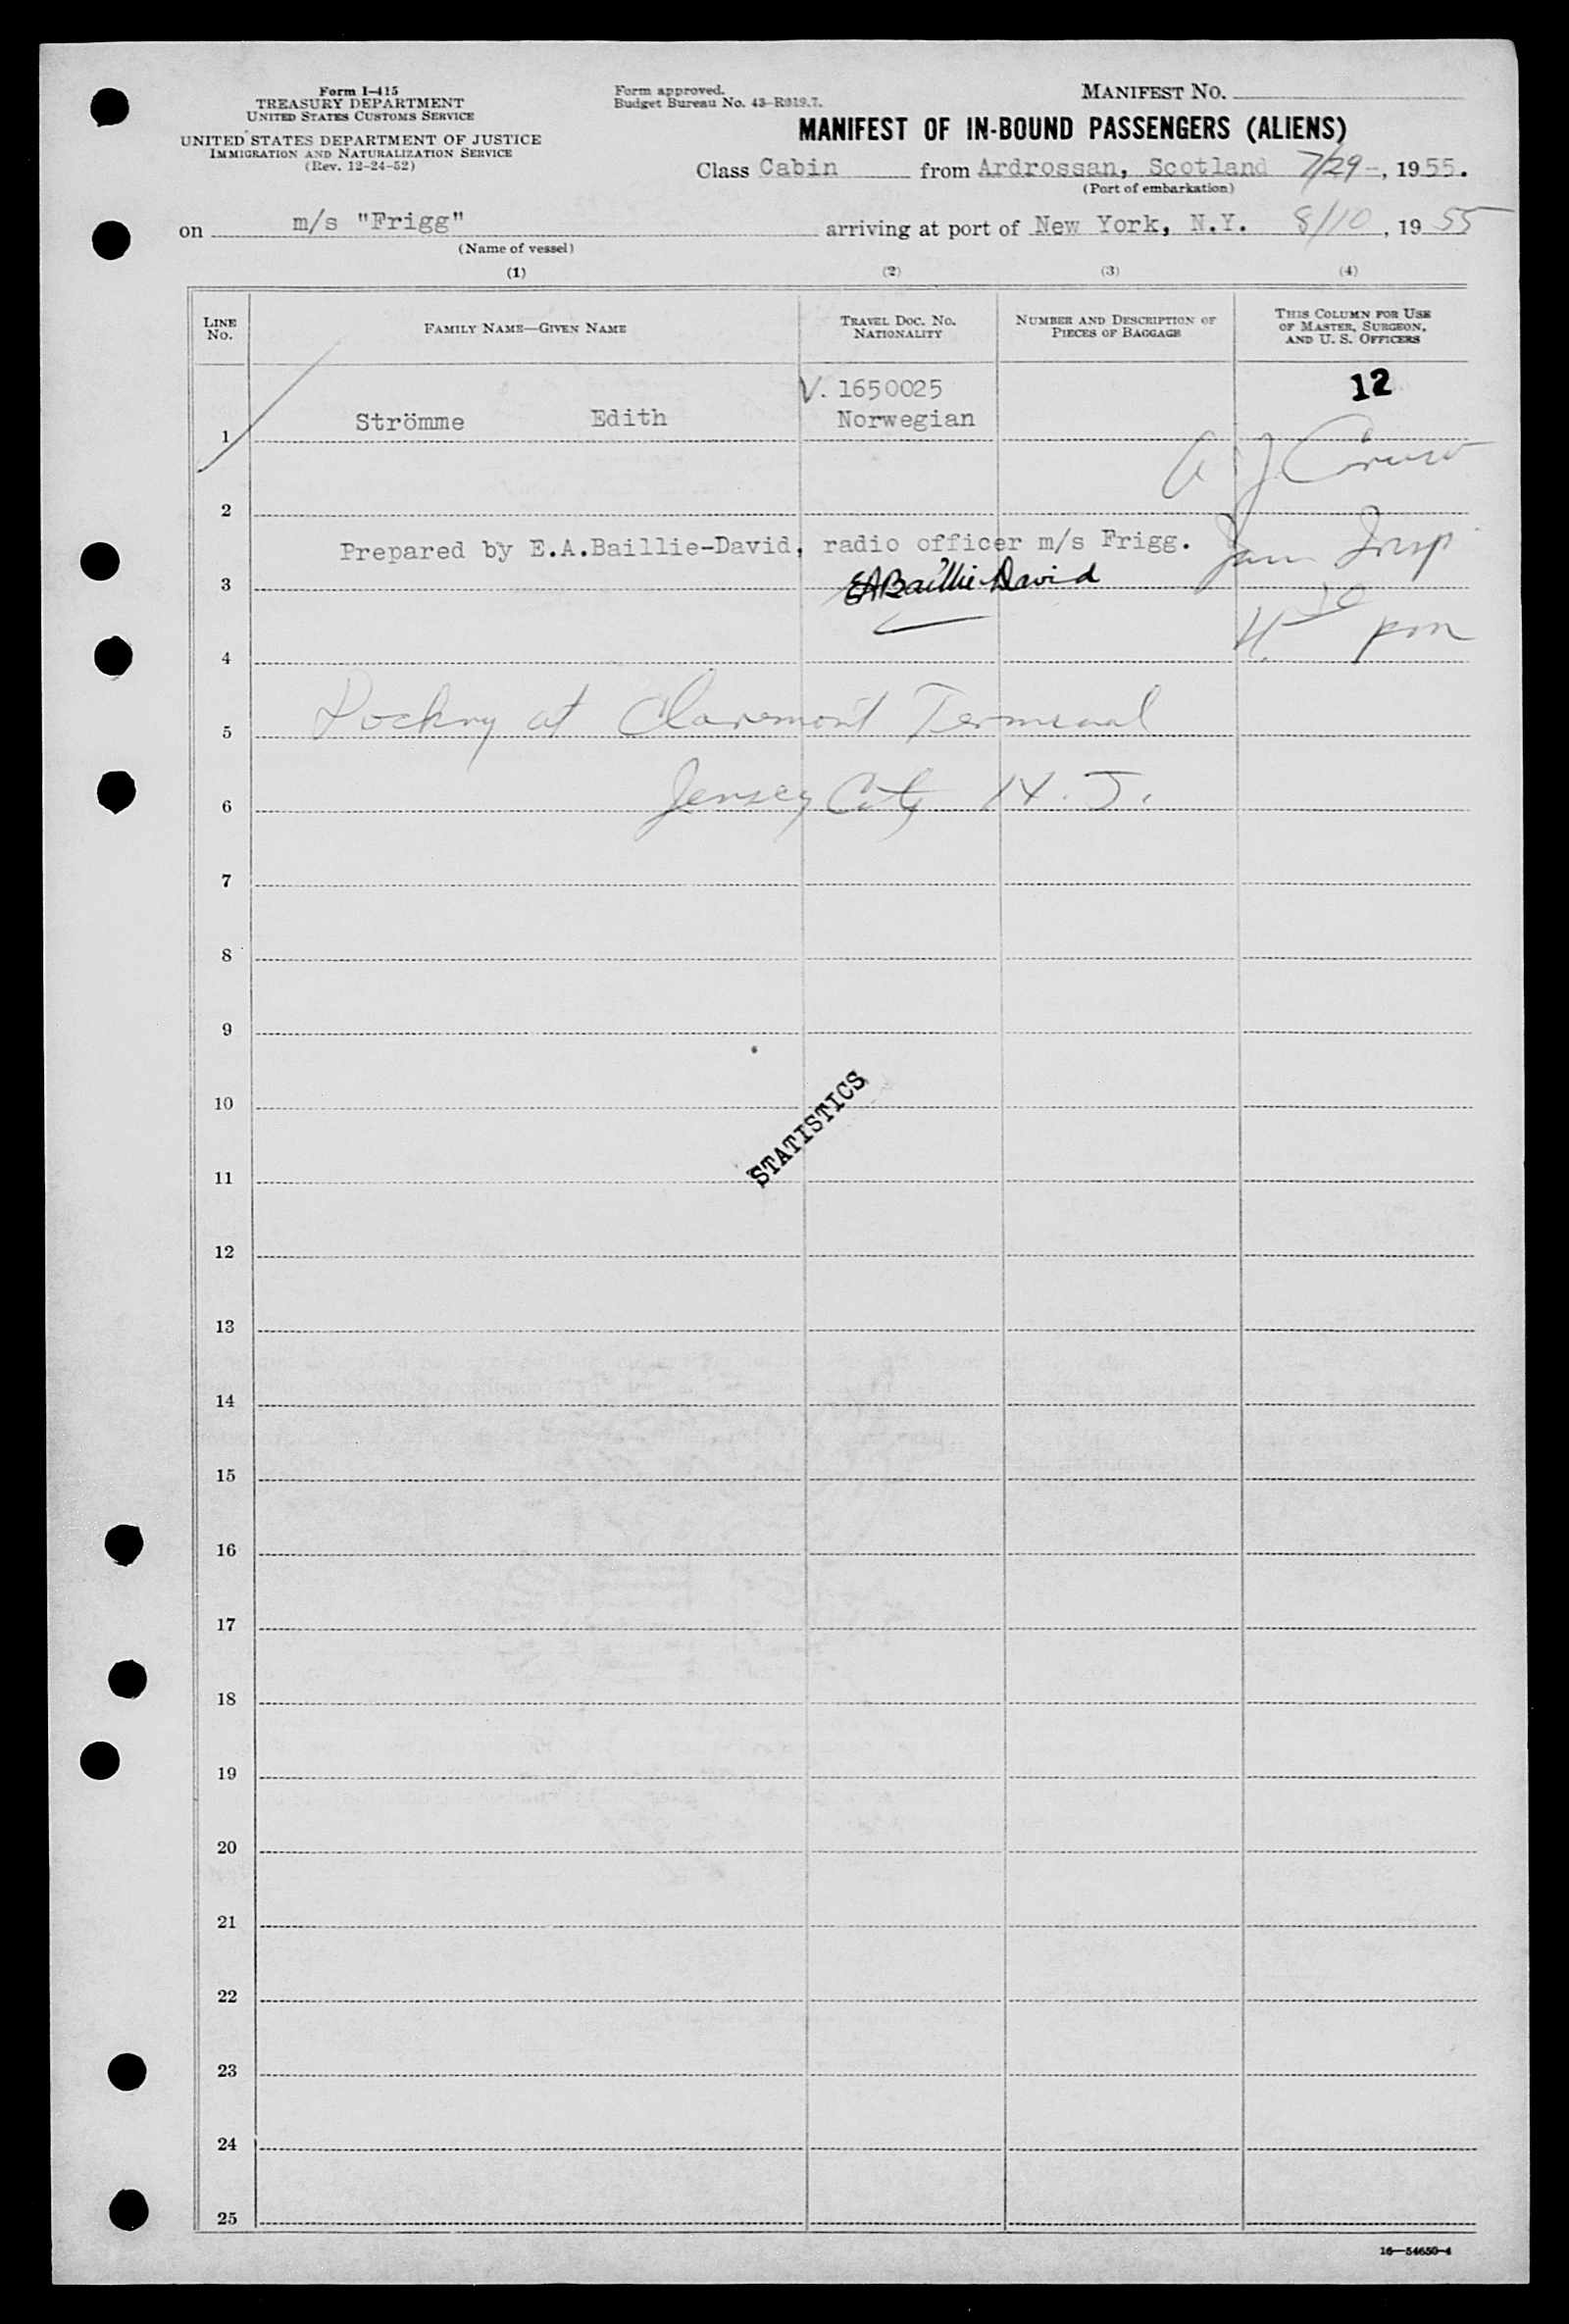 Form I-415
TREASURY DEPARTMENT
UNITED STATES CUSTOMS SERVICE
UNITED STATES DEPARTMENT OF JUSTICE
IMMIGRATION AND NATURALIZATION SERVICE
(Rev. 12-24-52)
Form approved.
Budget Bureau No. 43-R019.7.
MANIFEST NO.
MANIFEST OF IN-BOUND PASSENGERS (ALIENS)
Class Cabin from Ardrossan, Scotland 7/29-, 1955.
(Port of embarkation)
on m/s "Frigg" arriving at port of New York, N.Y. 8/10, 1955
(Name of vessel)
(1) (2) (3) (4)
LINE NO. FAMILY NAME—GIVEN NAME TRAVEL DOC. NO. NATIONALITY NUMBER AND DESCRIPTION OF PIECES OF BAGGAGE THIS COLUMN FOR USE OF MASTER, SURGEON, AND U. S. OFFICERS
V. 1650025 12
1 Strömme Edith Norwegian
A J Caruso
2
Prepared by E.A.Baillie-David, radio officer m/s Frigg. Insp
3 EABaillie-David
4 4:30 pm
5 Docking at Claremont Terminal
6 Jersey City N. J.
7
8
9
10
STATISTICS
11
12
13
14
15
16
17
18
19
20
21
22
23
24
25
16—54650-4